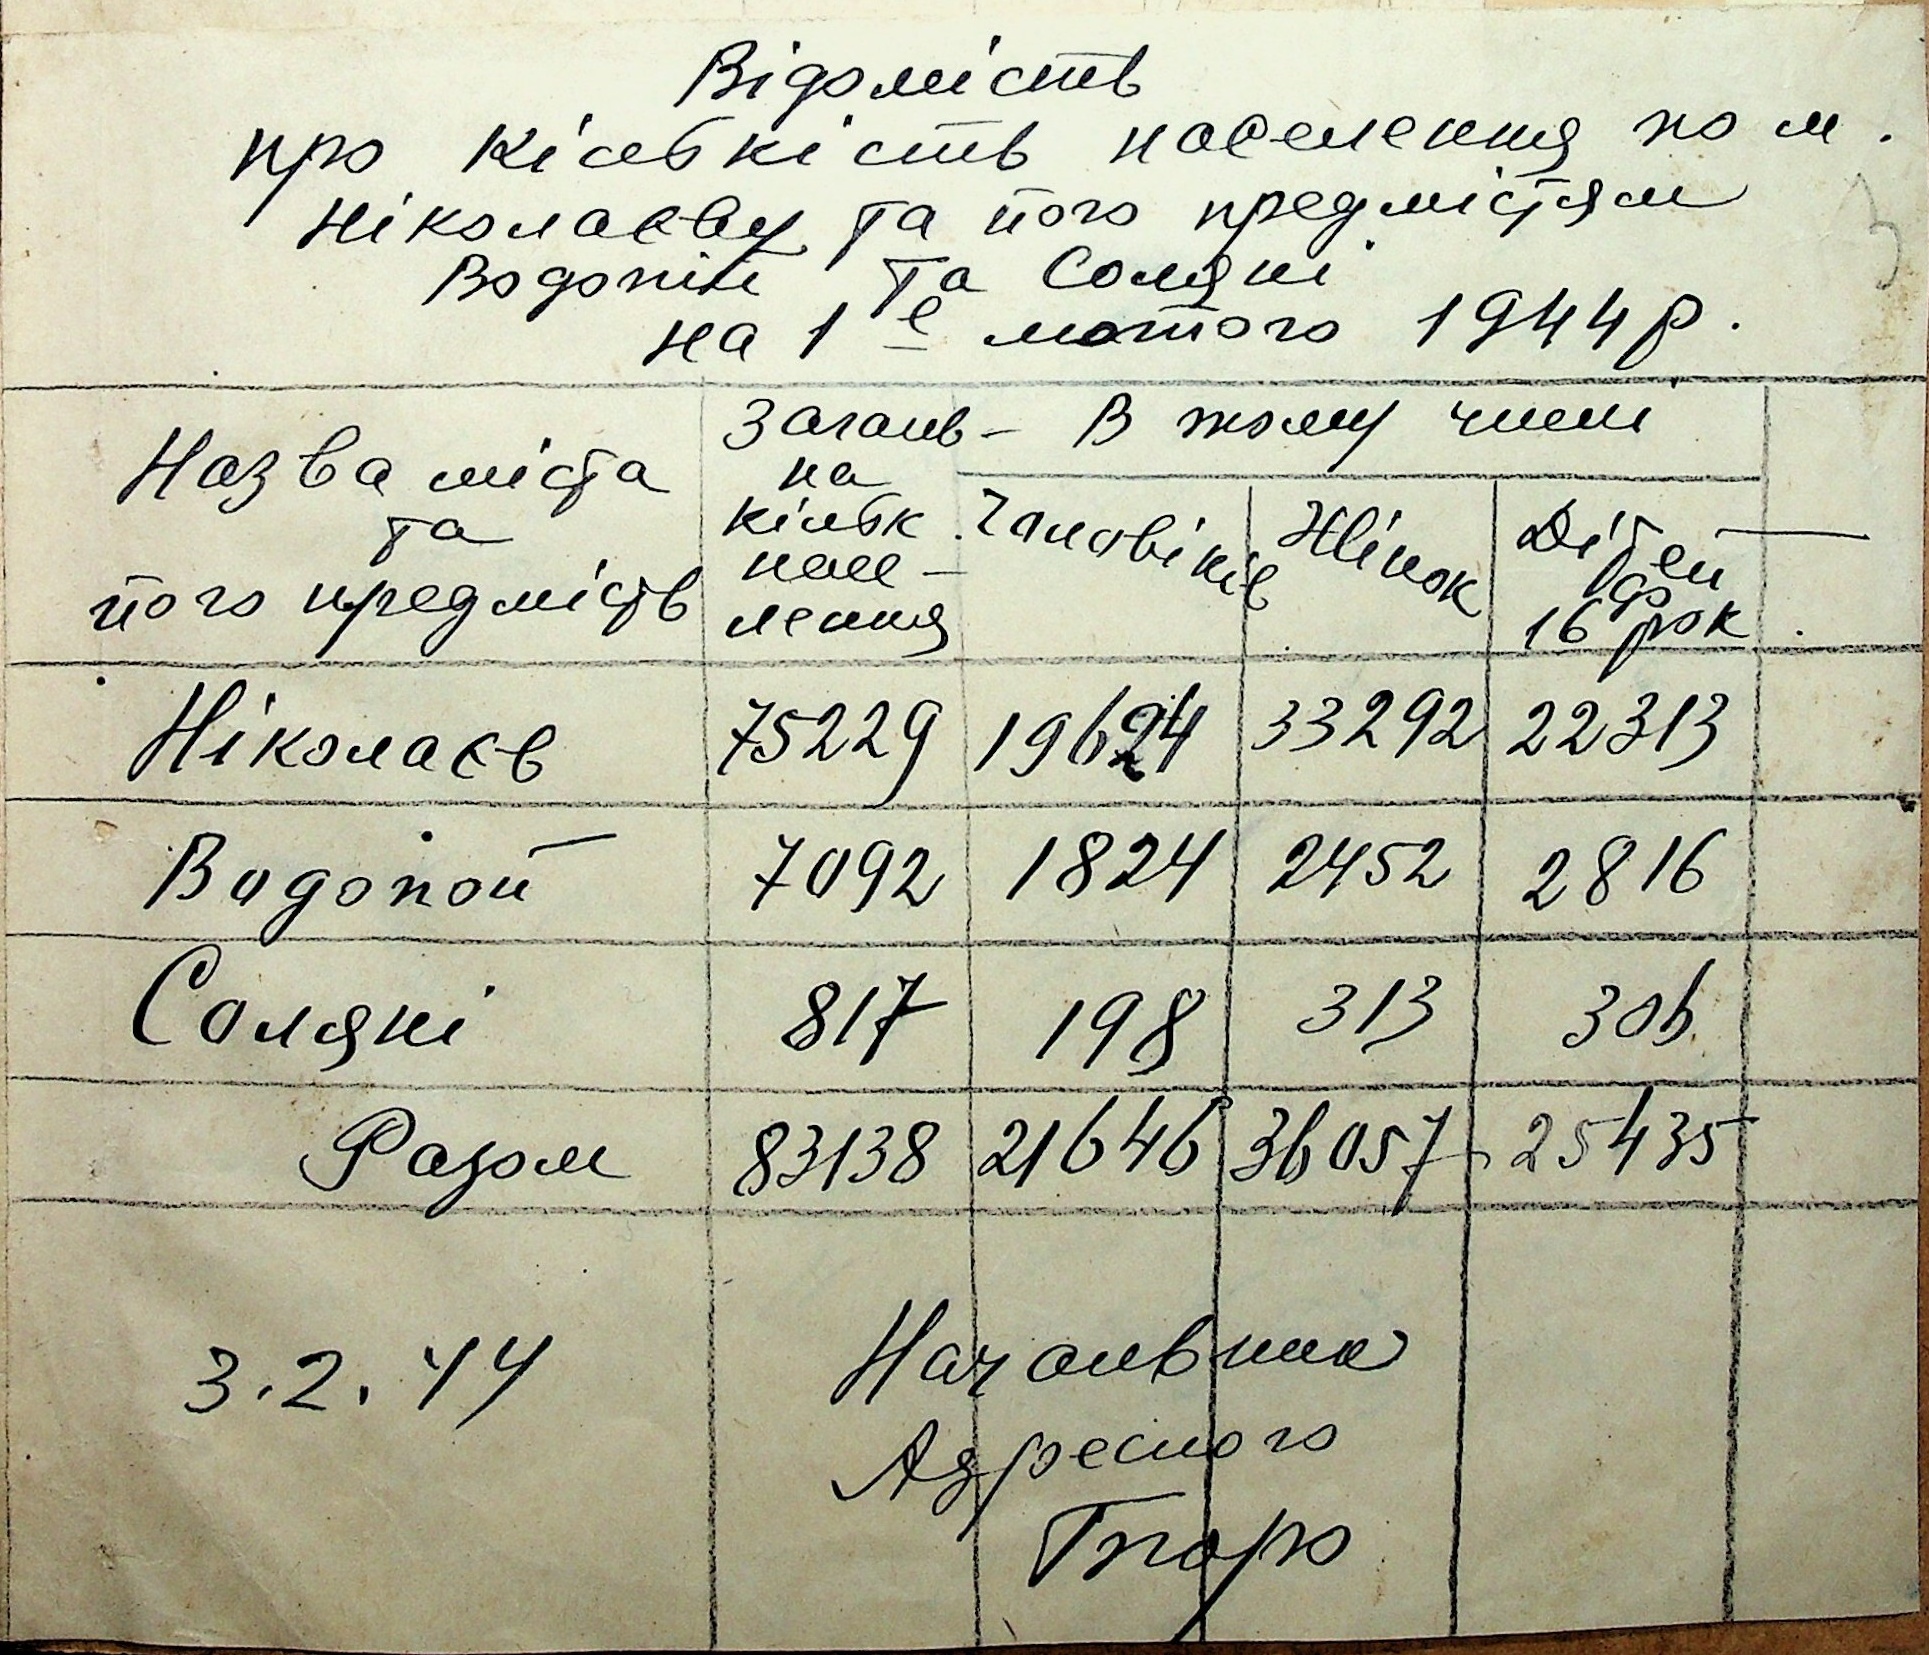 Відомість
про кількість населення по м.
Ніколаєву та його предмістям
Водопій та Соляні
на 1е лютого 1944 р.
Назва міста
та
його предмість
Загаль-
на
кільк
насе-
лення
В тому числі
Чоловіків
Жінок
Дітей
до
16 рок
Ніколаєв 75229 19624 33292 22313
Водопой 7092 1824 2452 2816
Соляні 817 198 313 306
Разом 83138 21646 36057 25435
3.2.44
Начальник
Адресного
Бюро